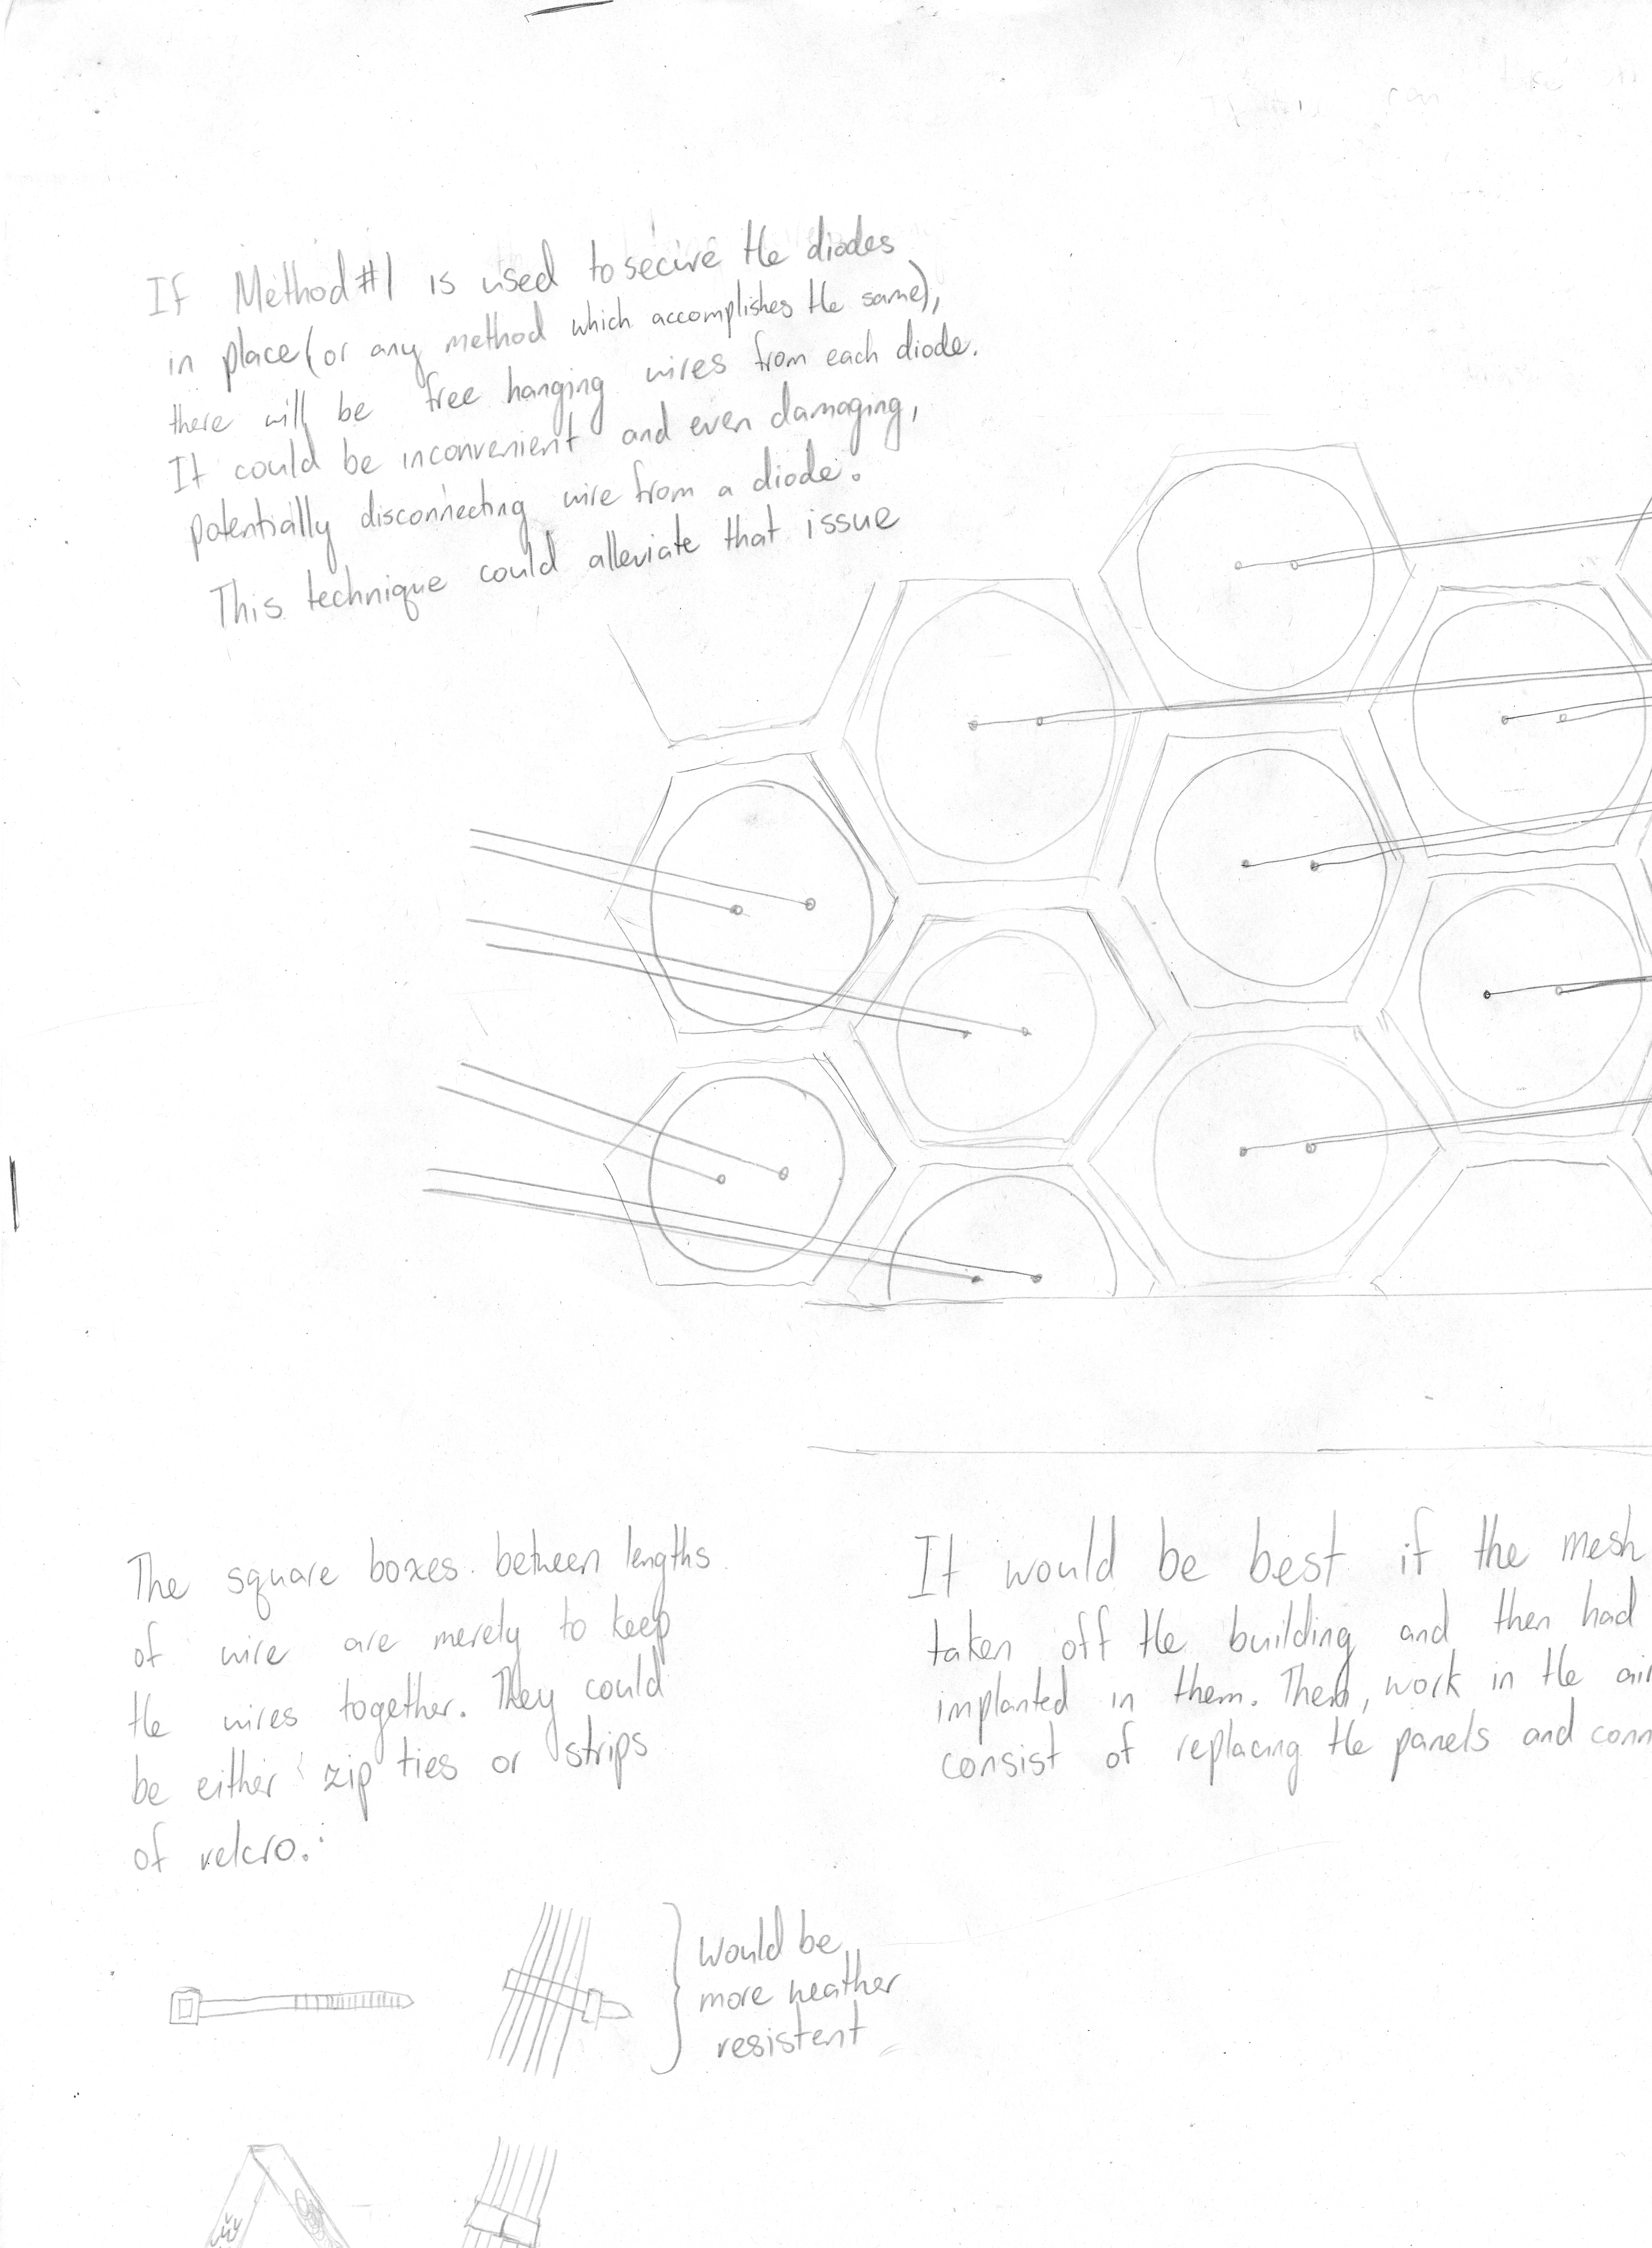 If Method #1 is used to secure the diodes
in place (or any method which accomplishes the same),
there will be free hanging wires from each diode.
It could be inconvenient and even damaging,
potentially disconnecting wire from a diode.
This technique could alleviate that issue
The square boxes between lengths
of wire are merely to keep
the wires together. They could
be either zip ties or strips
of velcro.
It would be best if the mesh
taken off the building and then had
implanted in them. Then, work in the air
consist of replacing the panels and conn
would be
more weather
resistent